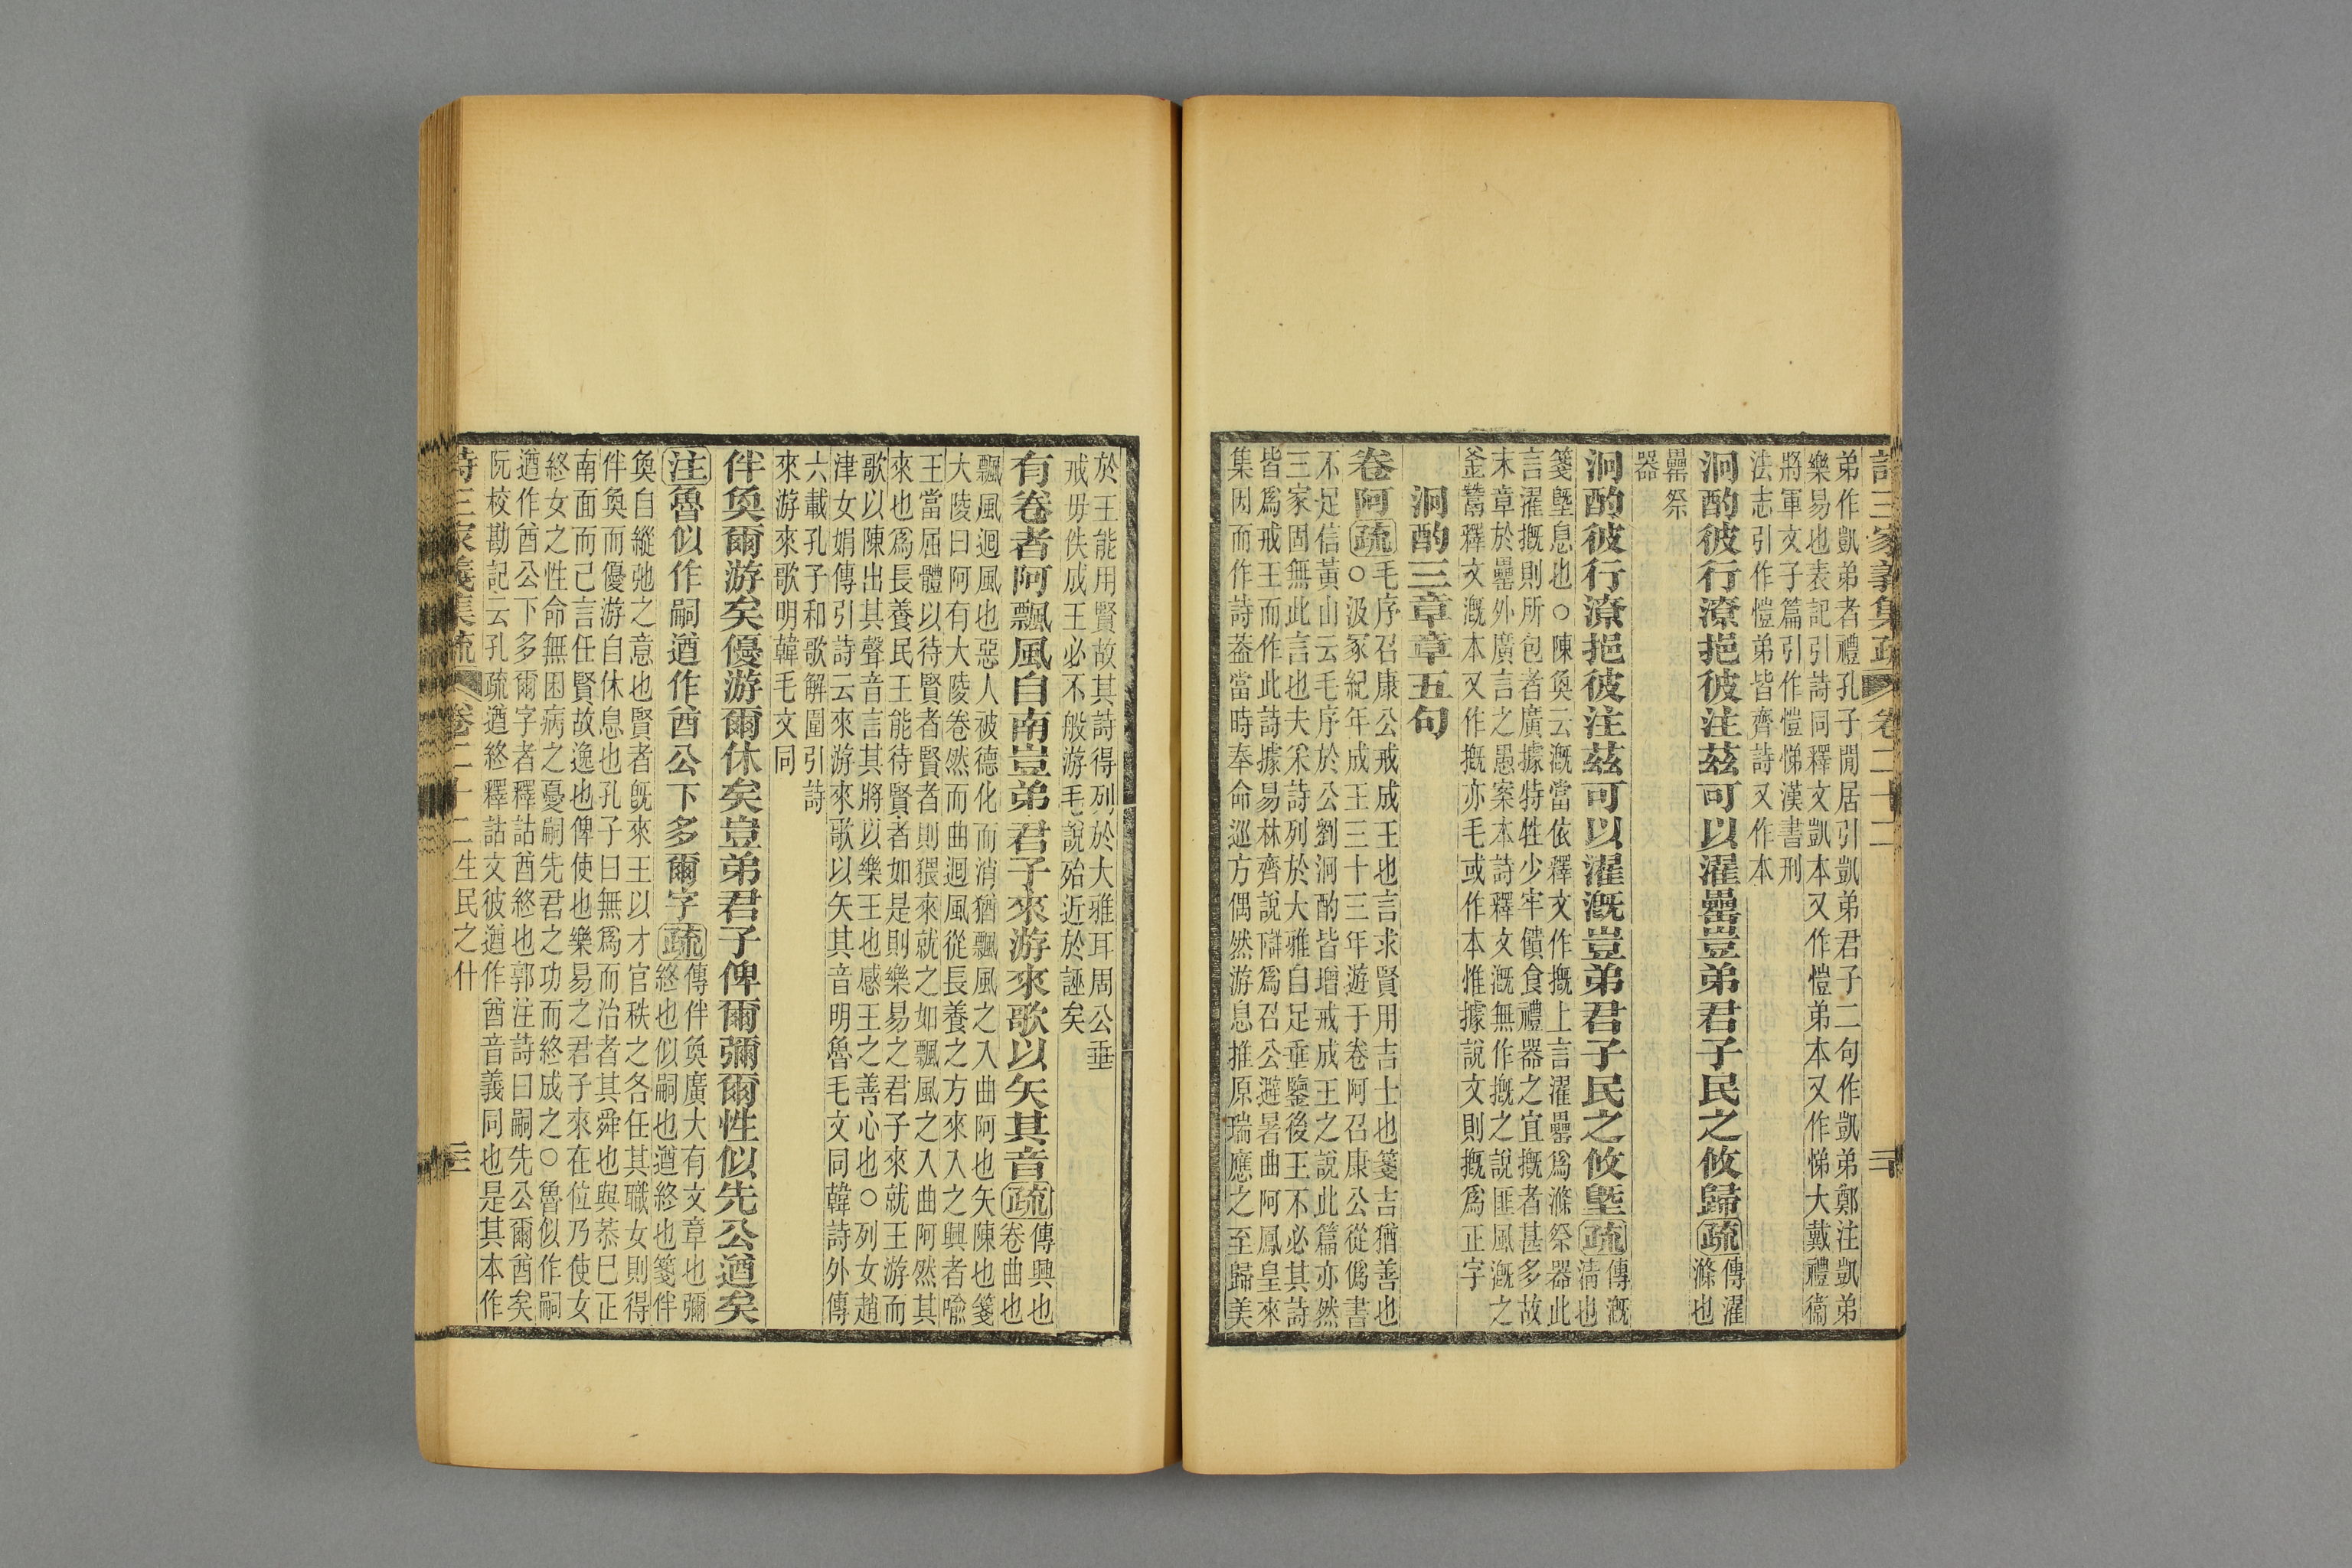 詩三家義集疏 卷二十二
弟作凱弟者禮孔子閒居引凱弟君子二句作凱弟鄭注凱弟
樂易也表記引詩同釋文凱本又作愷弟本又作悌大戴禮衞
將軍文子篇引作愷悌漢書刑
法志引作愷弟皆齊詩又作本
泂酌彼行潦挹彼注茲可以濯罍豈弟君子民之攸歸疏傳濯
滌也
罍祭
器
泂酌彼行潦挹彼注茲可以濯溉豈弟君子民之攸塈疏傳溉
清也
箋塈息也○陳奐云溉當依釋文作摡上言濯罍爲滌祭器此
言濯摡則所包者廣據特牲少牢饋食禮器之宜摡者甚多故
末章於罍外廣言之愚案本詩釋文溉無作摡之說匪風溉之
釜鬵釋文溉本又作摡亦毛或作本惟據說文則摡爲正字
泂酌三章章五句
卷阿疏毛序召康公戒成王也言求賢用吉士也箋吉猶善也
○汲冢紀年成王三十三年遊于卷阿召康公從僞書
不足信黃山云毛序於公劉泂酌皆增戒成王之說此篇亦然
三家固無此言也夫采詩列於大雅自足垂鑒後王不必其詩
皆爲戒王而作此詩據易林齊說辭爲召公避暑曲阿鳳皇來
集因而作詩葢當時奉命巡方偶然游息推原瑞應之至歸美
於王能用賢故其詩得列於大雅耳周公垂
戒毋佚成王必不般游毛說殆近於誣矣
有卷者阿飄風自南豈弟君子來游來歌以矢其音疏傳興也
卷曲也
飄風迴風也惡人被德化而消猶飄風之入曲阿也矢陳也箋
大陵曰阿有大陵卷然而曲迴風從長養之方來入之興者喻
王當屈體以待賢者賢者則猥來就之如飄風之入曲阿然其
來也爲長養民王能待賢者如是則樂易之君子來就王游而
歌以陳出其聲音言其將以樂王也感王之善心也○列女趙
津女娟傳引詩云來游來歌以矢其音明魯毛文同韓詩外傳
六載孔子和歌解圍引詩
來游來歌明韓毛文同
伴奐爾游矣優游爾休矣豈弟君子俾爾彌爾性似先公遒矣
注魯似作嗣遒作酋公下多爾字疏傳伴奐廣大有文章也彌
終也似嗣也遒終也箋伴
奐自縱弛之意也賢者旣來王以才官秩之各任其職女則得
伴奐而優游自休息也孔子曰無爲而治者其舜也與恭巳正
南面而己言任賢故逸也俾使也樂易之君子來在位乃使女
終女之性命無困病之憂嗣先君之功而終成之○魯似作嗣
遒作酋公下多爾字者釋詁酋終也郭注詩曰嗣先公爾酋矣
阮校勘記云孔疏遒終釋詁文彼遒作酋音義同也是其本作
詩三家義集疏 卷二十二生民之什